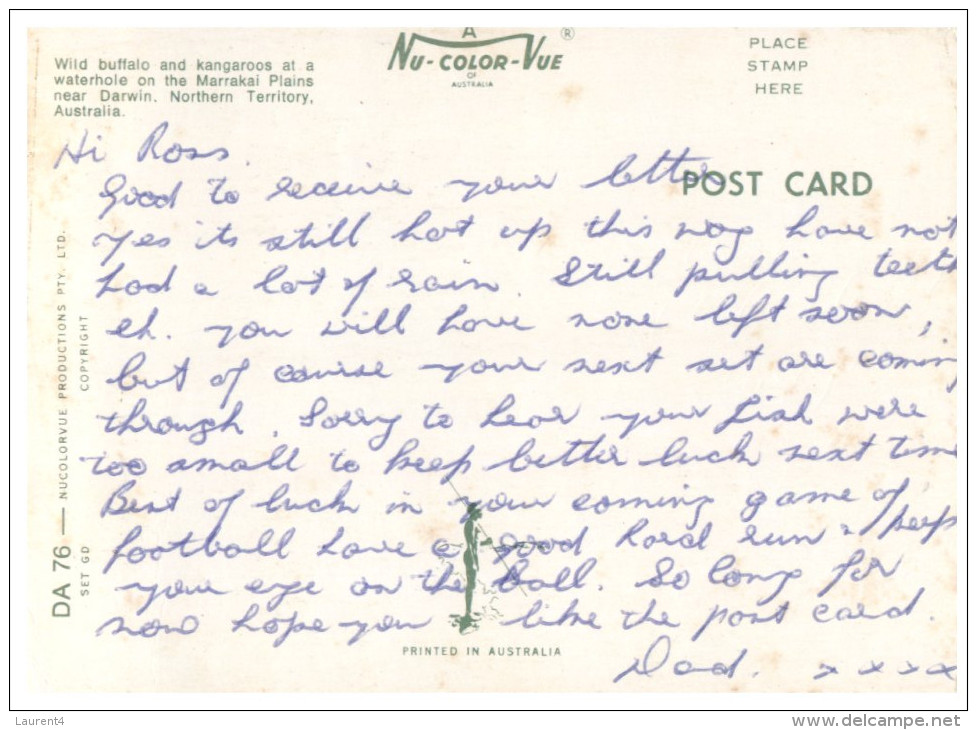 A
NU-COLOR-VUE ®
OF
AUSTRALIA
PLACE
STAMP
HERE
Wild buffalo and kangaroos at a
waterhole on the Marrakai Plains
near Darwin. Northern Territory,
Australia.
POST CARD
Hi Ross.
Good to receive your letter
yes its still hot up this way have not
had a lot of rain. Still pulling teeth
eh. you will have none left soon,
but of course your next set are coming
through. Sorry to hear your fish were
too small to keep better luck next time
Best of luck in your coming game of
football have a good hard run & keep
your eye on the ball. So long for
now hope you like the post card.
Dad. x x x x
DA 76 — NUCOLORVUE PRODUCTIONS PTY. LTD.
SET GD COPYRIGHT
PRINTED IN AUSTRALIA
Laurent4
www.delcampe.net